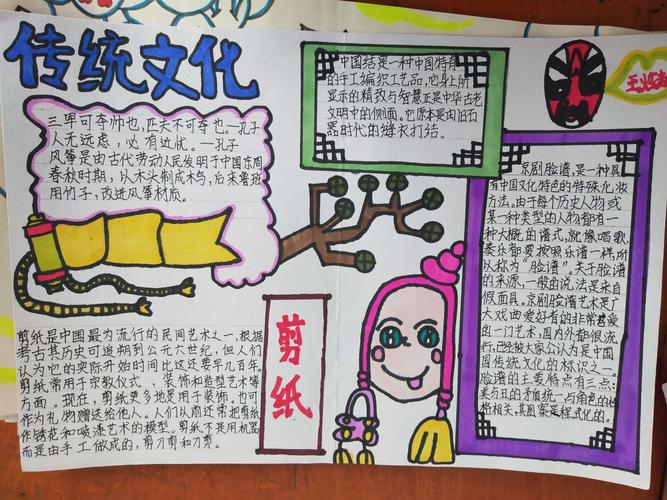 传统文化
三军可夺帅也,匹夫不可夺也。一孔子
人无远虑,必有近忧。一孔子
风筝是由古代劳动人民发明于中国东周
春秋时期,以木头制成木鸟,后来鲁班
用竹子,改进风筝材质。
中国结是一种中国特有
的手工编织工艺品,它身上所
显示的精致与智慧正是中华古老
文明中的侧面。它原本是由旧石
器时代的缝衣打结。
京剧脸谱,是一种具
有中国文化特色的特殊化妆
方法。由于每个历史人物或
某一种类型的人物都有一
种大概的谱式,就像唱歌、
奏乐都要按照乐谱一样,所
以称为“脸谱”。关于脸谱
的来源,一般的说法是来自
假面具。京剧脸谱艺术是广
大戏曲爱好者的非常喜爱
的一门艺术,国内外都很流
行,已经被大家公认为是中国
国传统文化的标识之一。
脸谱的主要特点有三点:
美与丑的矛盾统一与角色的性
格相关,其图案是程式化的。
剪纸
剪纸是中国最为流行的民间艺术之一,根据
考古其历史可追朔到公元六世纪,但人们
认为它的实际开始时间比这还要早几百年。
剪纸常用于宗教仪式,装饰和造型艺术等
方面。现在,剪纸更多地是用于装饰。也可
作为礼物赠送给他人。人们从前还常把剪纸
作锈花和喷漆艺术的模型。剪纸不是用机器
而是由手工做成的,剪刀剪和刀剪。